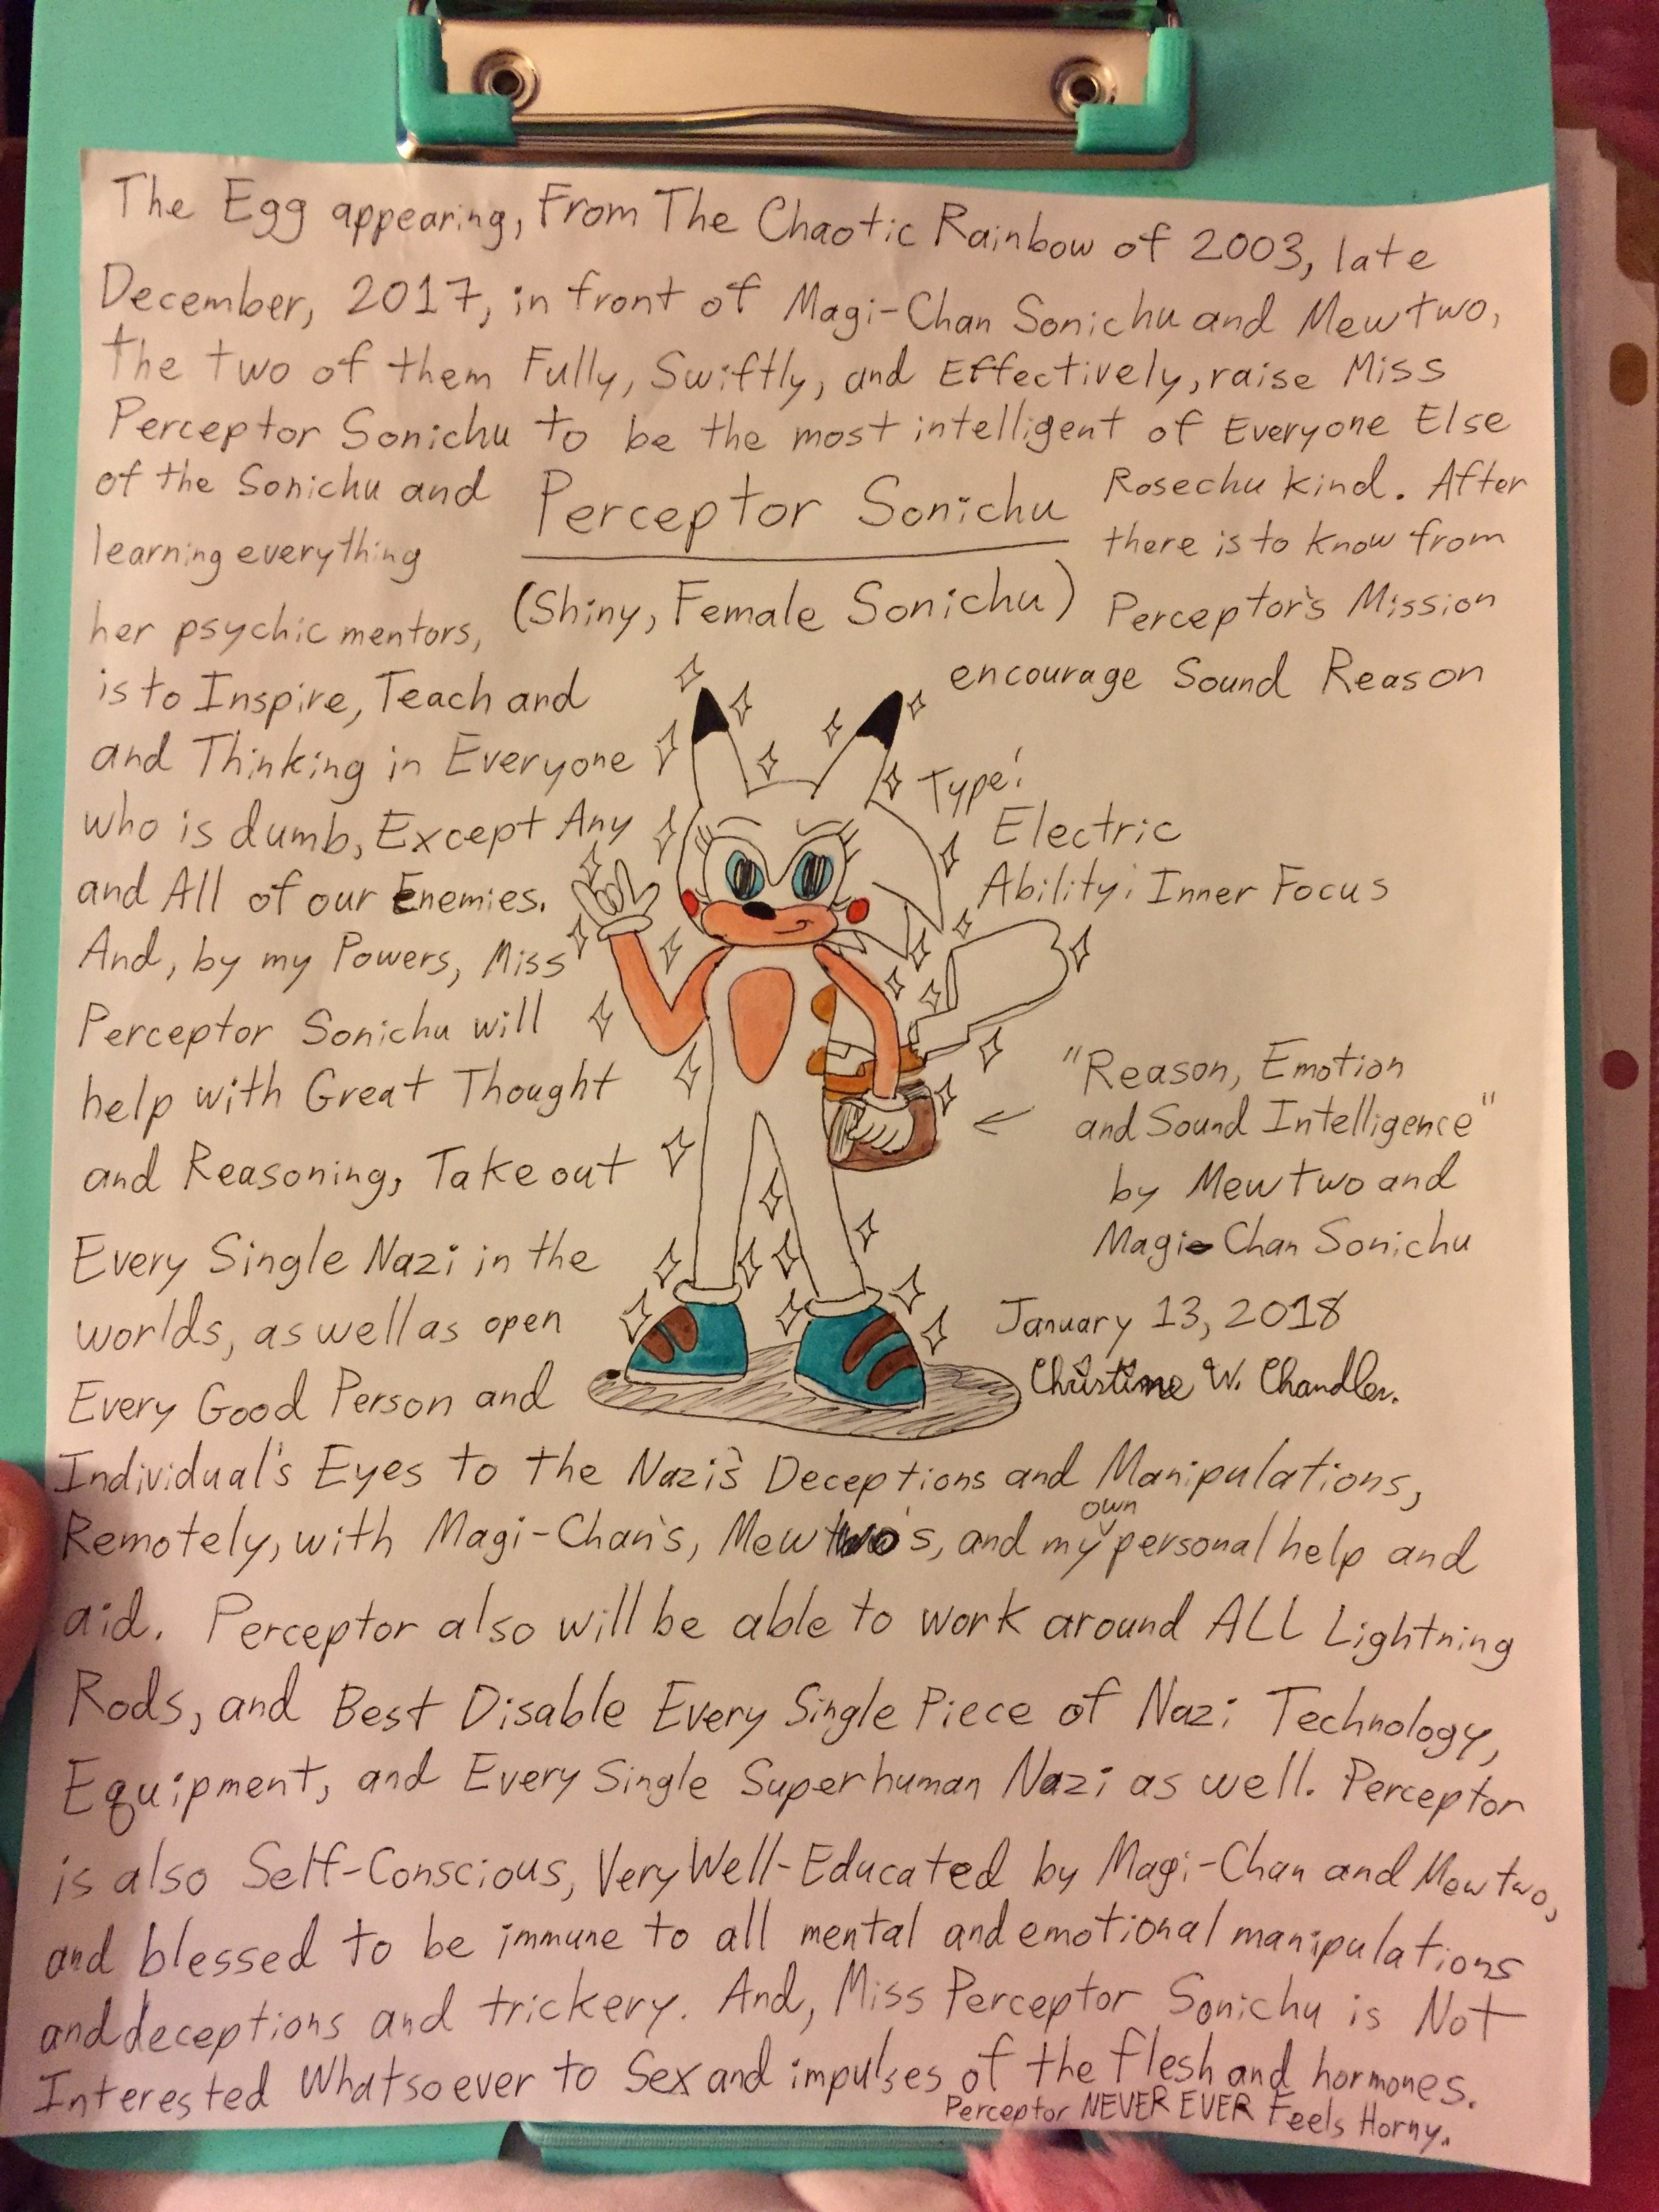 The Egg appearing, From The Chaotic Rainbow of 2003, late
December, 2017, in front of Magi-Chan Sonichu and Mewtwo,
the two of them Fully, Swiftly, and Effectively, raise Miss
Perceptor Sonichu to be the most intelligent of Everyone Else
of the Sonichu and Rosechu kind. After
learning everything there is to know from
her psychic mentors, Perceptor's Mission
is to Inspire, Teach and encourage Sound Reason
and Thinking in Everyone
who is dumb, Except Any
and All of our Enemies.
And, by my Powers, Miss
Perceptor Sonichu will
help with Great Thought
and Reasoning, Take out
Every Single Nazi in the
worlds, as well as open
Every Good Person and
Individual's Eyes to the Nazi's Deceptions and Manipulations,
Remotely, with Magi-Chan's, Mewtwo's, and my own personal help and
aid. Perceptor also will be able to work around ALL Lightning
Rods, and Best Disable Every Single Piece of Nazi Technology,
Equipment, and Every Single Superhuman Nazi as well. Perceptor
is also Self-Conscious, Very Well-Educated by Magi-Chan and Mewtwo,
and blessed to be immune to all mental and emotional manipulations
and deceptions and trickery. And, Miss Perceptor Sonichu is Not
Interested Whatsoever to Sex and impulses of the flesh and hormones.
Perceptor NEVER EVER Feels Horny.
Perceptor Sonichu
(Shiny, Female Sonichu)
Type:
Electric
Ability: Inner Focus
"Reason, Emotion
and Sound Intelligence"
by Mewtwo and
Magi-Chan Sonichu
January 13, 2018
Christine W. Chandler.